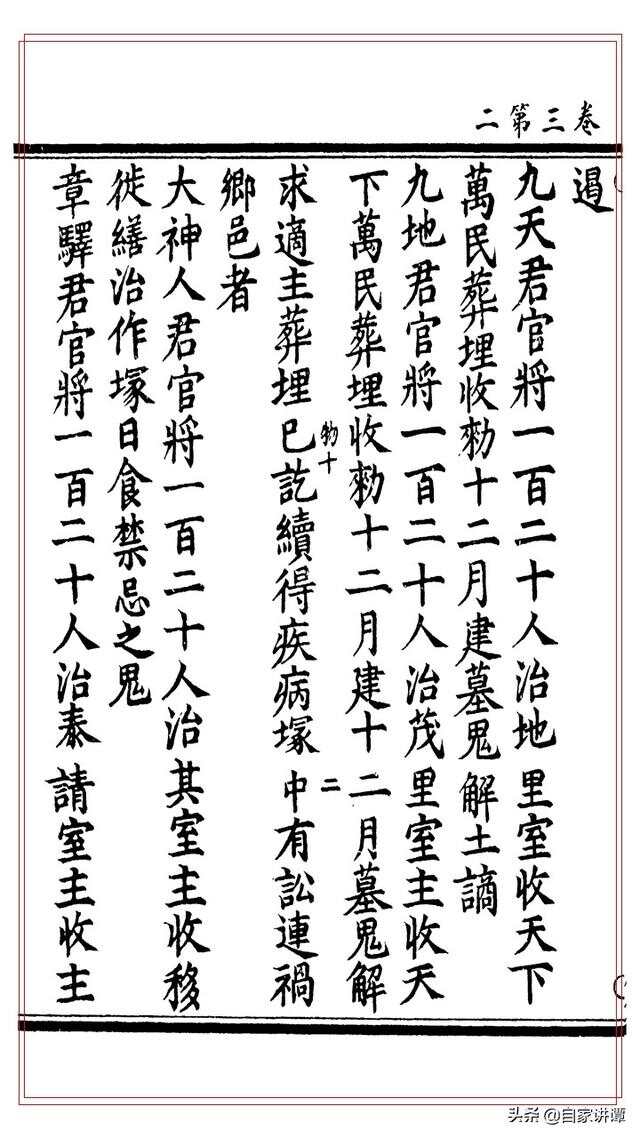 卷三第二
遏
九天君官將一百二十人治地里室收天下
萬民葬埋收勑十二月建墓鬼解土謫
九地君官將一百二十人治茂里室主收天
下萬民葬埋收勑十二月建十二月墓鬼解
物十二
求適主葬埋已訖續得疾病塚中有訟連禍
鄉邑者
大神人君官將一百二十人治其室主收移
徙繕治作塚日食禁忌之鬼
章驛君官將一百二十人治泰請室主收主
头条 @自家讲谭